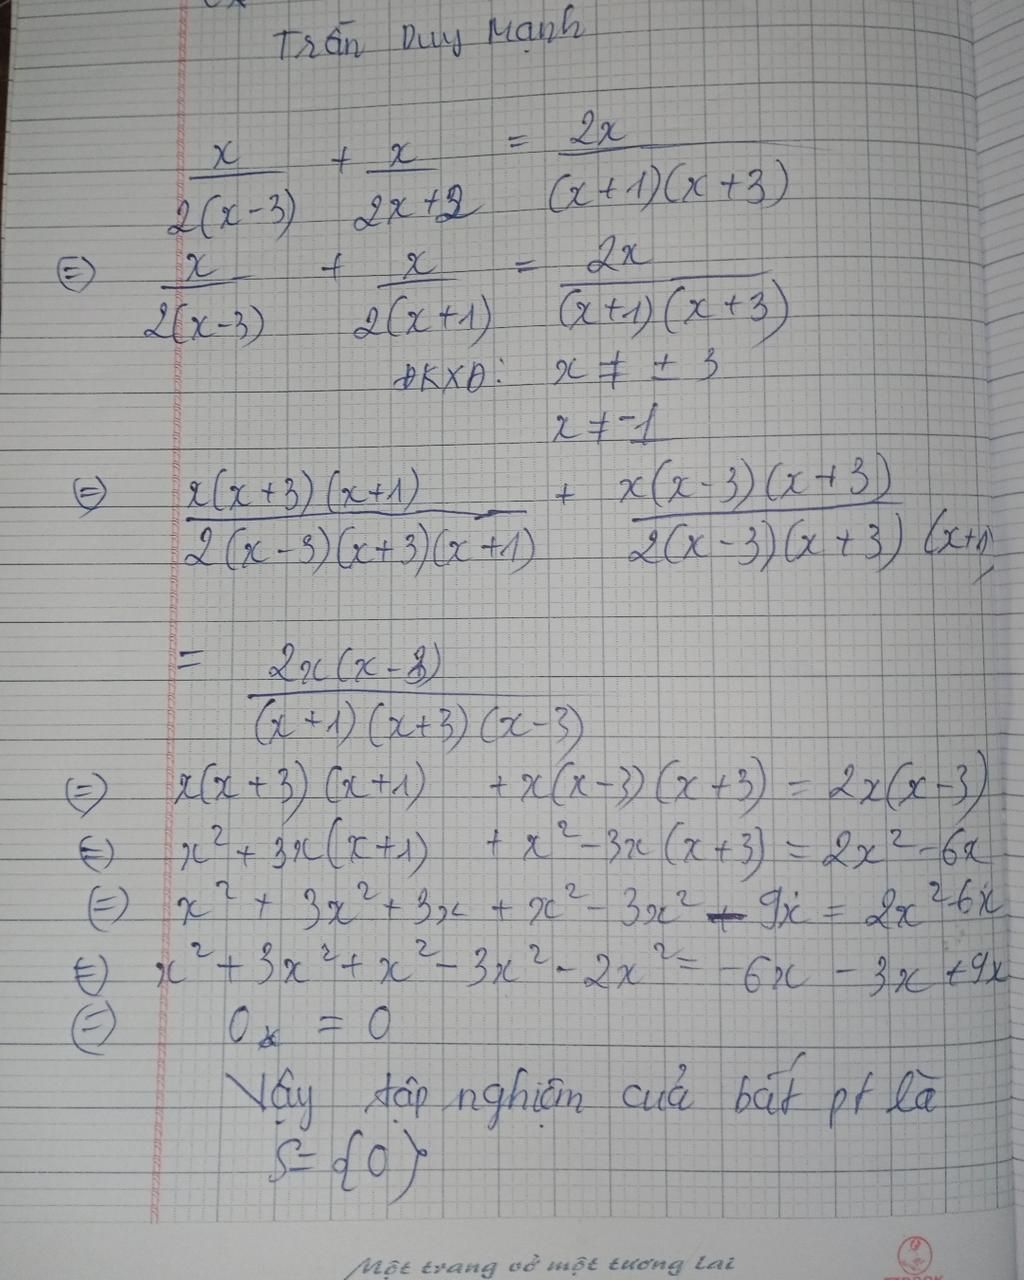 Trần Duy Mạnh
x/(2(x-3)) + x/(2x+2) = 2x/((x+1)(x+3))
⇔ x/(2(x-3)) + x/(2(x+1)) = 2x/((x+1)(x+3))
ĐKXĐ: x ≠ ± 3
x ≠ -1
⇔ x(x+3)(x+1)/(2(x-3)(x+3)(x+1)) + x(x-3)(x+3)/(2(x-3)(x+3)(x+1))
= 2x(x-3)/((x+1)(x+3)(x-3))
⇔ x(x+3)(x+1) + x(x-3)(x+3) = 2x(x-3)
⇔ x² + 3x(x+1) + x² - 3x(x+3) = 2x² - 6x
⇔ x² + 3x² + 3x + x² - 3x² - 9x = 2x² - 6x
⇔ x² + 3x² + x² - 3x² - 2x² = -6x - 3x + 9x
⇔ 0x = 0
Vậy tập nghiệm của bất pt là
S = {0}
Một trang vở một tương lai